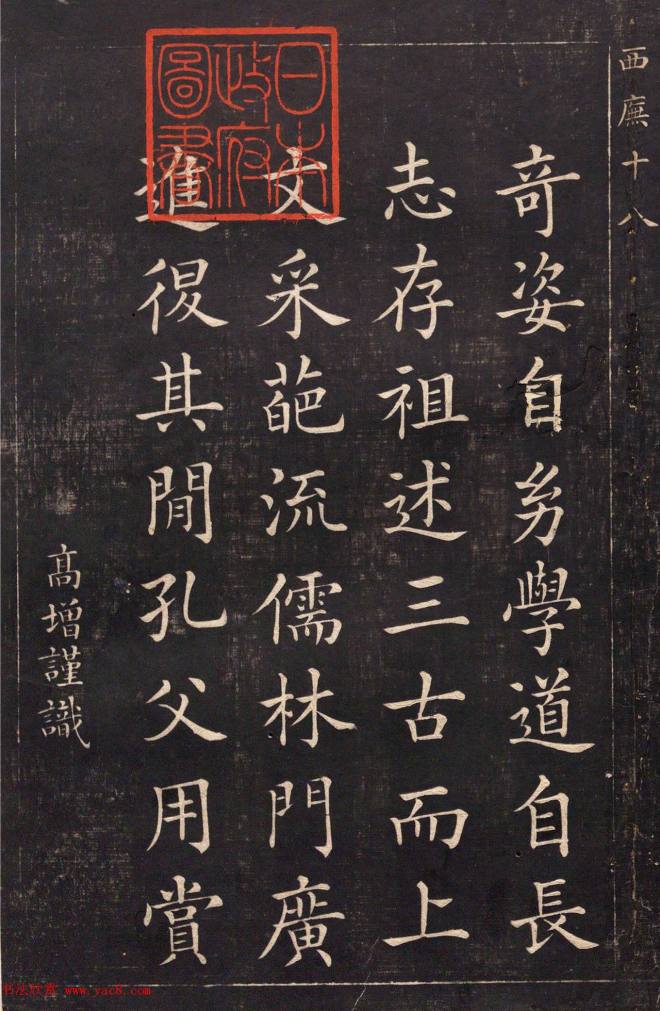 西廡十八
奇姿自㓜學道自長
志存祖述三古而上
文采葩流儒林門廣
進㣪其閒孔父用賞
高增謹識
日本
政府
圖書
书法欣赏 www.yac8.com